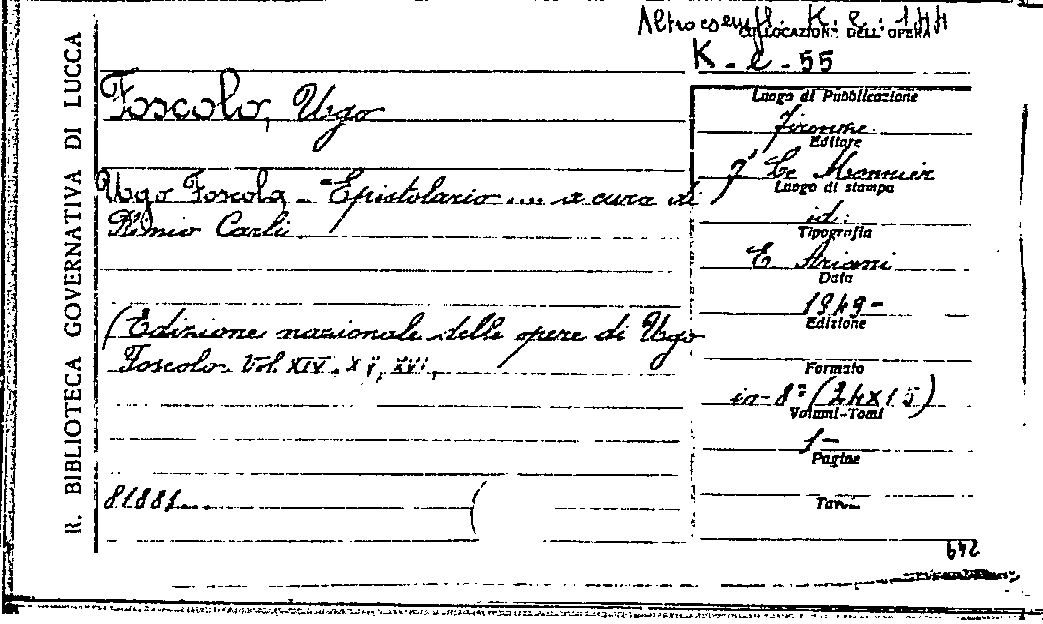 R. BIBLIOTECA GOVERNATIVA DI LUCCA
Altro esempl. K. e. 144
COLLOCAZIONE DELL'OPERA
K - e - 55
Foscolo, Ugo
Ugo Foscolo - Epistolario .... a cura di
Plinio Carli
(Edizione nazionale delle opere di Ugo
Foscolo. Vol. XIV. XV, XVI.
81881....
Luogo di Pubblicazione
Firenze
Editore
F. Le Monnier
Luogo di stampa
id.
Tipografia
E Ariani
Data
1949-
Edizione
Formato
in-8° (24x15)
Volumi-Tomi
1-
Pagine
Tav.
649